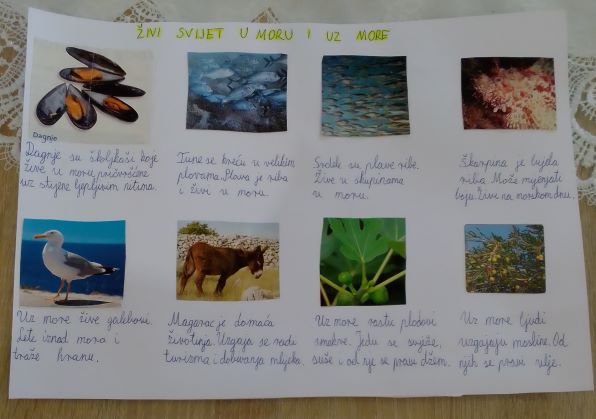 ŽIVI SVIJET U MORU I UZ MORE
Dagnje
Dagnje su školjkaši koje
žive u moru, pričvršćene
uz stijene ljepljivim nitima.
Tune se kreću u velikim
plovama. Plava je riba
i živi u moru.
Srdele su plave ribe.
Žive u skupinama
u moru.
Škarpina je bijela
riba. Može mijenjati
boju. Živi na morskom dnu.
Uz more žive galebovi.
Lete iznad mora i
traže hranu.
Magarac je domaća
životinja. Uzgaja se radi
turizma i dobivanja mlijeka.
Uz more rastu plodovi
smokve. Jedu se svježe,
suše i od nje se pravi džem.
Uz more ljudi
uzgajaju masline. Od
njih se pravi ulje.